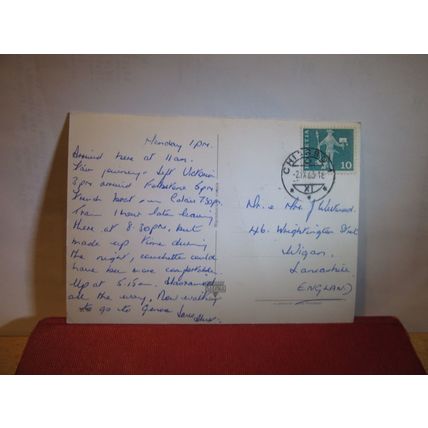 Monday 1 P.M.
Arrived here at 11 am.
Fair journey. Left Victoria
3 pm arrived Folkestone 5 pm.
French boat Calais 7.30pm.
Train 1 hour late leaving
there at 8.30 pm, but
made up time during
the night, couchette could
have been more comfortable.
Up at 5.15 am.
all the way. Now waiting
to go to Genoa Love
HELVETIA
10
CHIASSO 1
XI
Mr. & Mrs. J
46. Wrightington Street
Wigan,
Lancashire,
ENGLAND